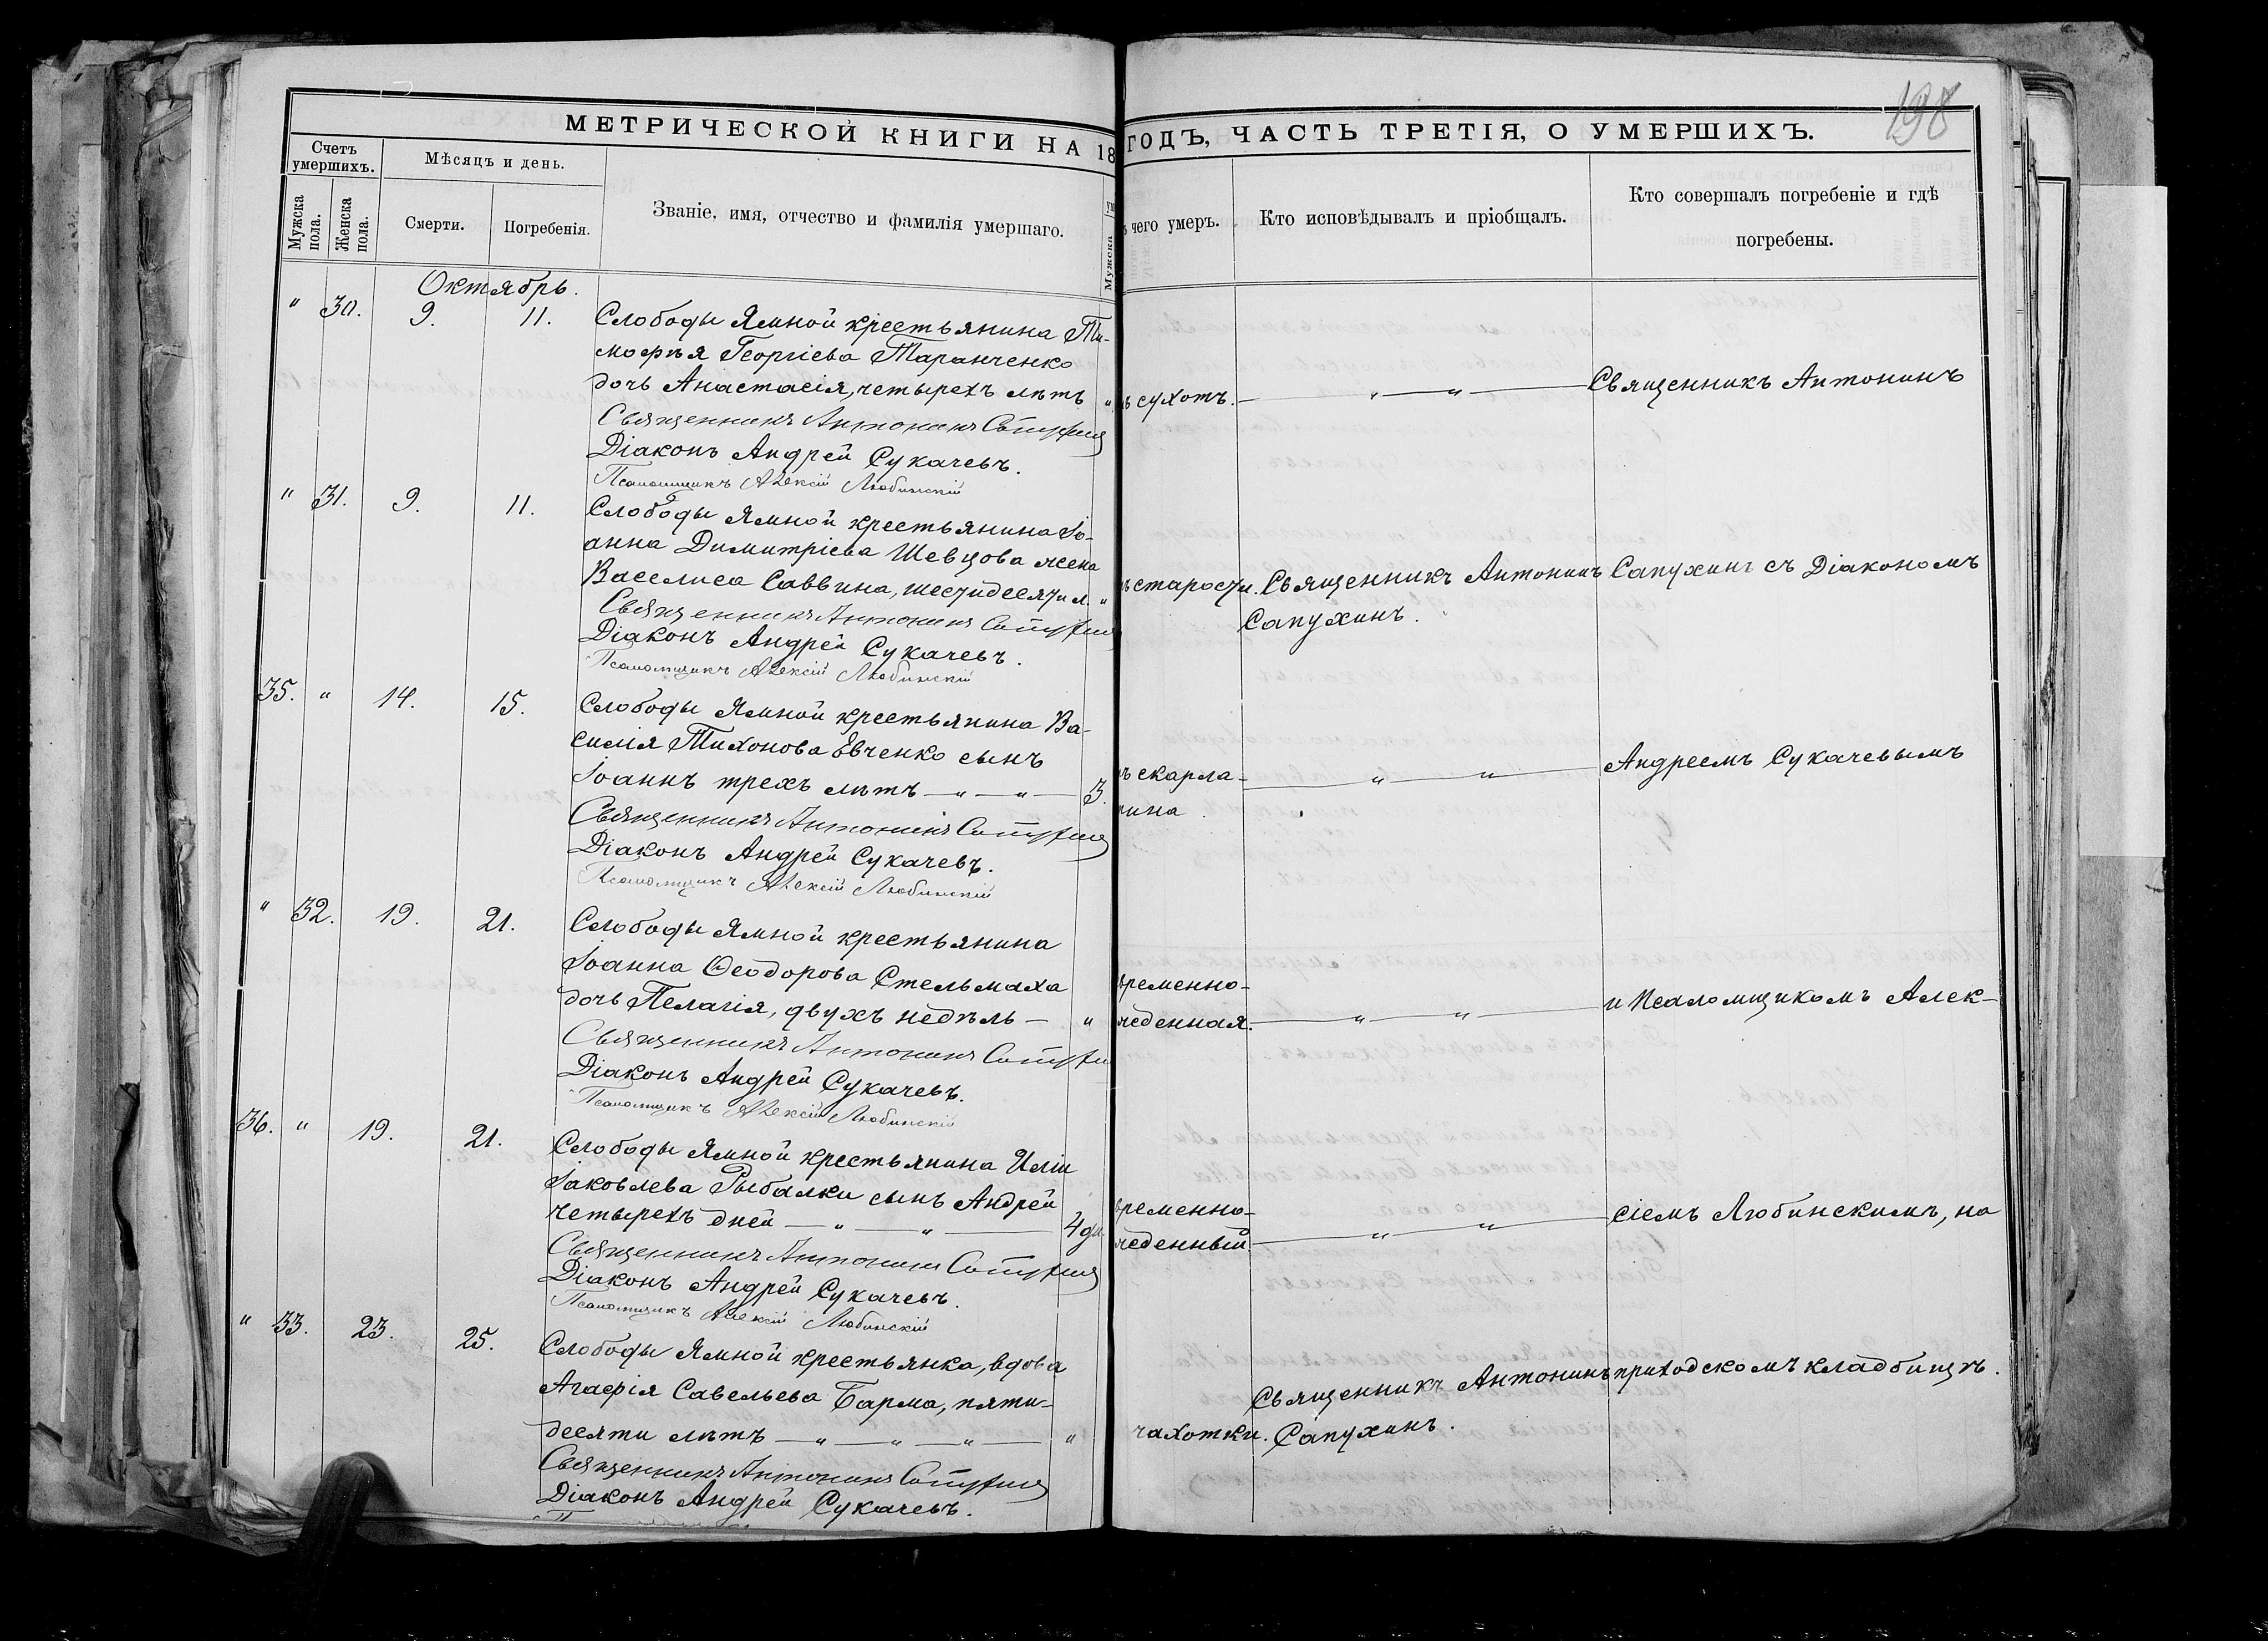 198
МЕТРИЧЕСКОЙ КНИГИ НА 18 ГОДЪ, ЧАСТЬ ТРЕТІЯ, О УМЕРШИХЪ.
Счетъ умершихъ.
Мужска пола.
Женска пола.
Мѣсяцъ и день.
Смерти.
Погребенія.
Званіе, имя, отчество и фамилія умершаго.
Мужска
чего умеръ.
Кто исповѣдывалъ и пріобщалъ.
Кто совершалъ погребеніе и гдѣ
погребены.
Октябрь.
" 30. 9. 11. Слободы Ямной крестьянина Ти-
мофѣя Георгіева Таранченко
дочь Анастасія, четырехъ лѣтъ "
сухотъ. — " — " — Священникъ Антонинъ
Священникъ Антонинъ Сапухинъ
Діаконъ Андрей Сукачевъ.
Псаломщикъ Алексій Любинскій
" 31. 9. 11. Слободы Ямной крестьянина Іо-
анна Димитріева Шевцова жена
Васелиса Саввина, шестидесяти л. "
старости. Священникъ Антонинъ Сапухинъ съ Діакономъ
Сапухинъ.
Священникъ Антонинъ Сапухинъ
Діаконъ Андрей Сукачевъ.
Псаломщикъ Алексій Любинскій
35. " 14. 15. Слободы Ямной крестьянина Ва-
силія Тихонова Евченко сынъ
Іоаннъ трехъ лѣтъ — " — " — 3.
скарла- — " — " — Андреемъ Сукачевымъ
тина
Священникъ Антонинъ Сапухинъ
Діаконъ Андрей Сукачевъ.
Псаломщикъ Алексій Любинскій
" 32. 19. 21. Слободы Ямной крестьянина
Іоанна Ѳеодорова Стельмаха
дочь Пелагія, двухъ недѣль — "
временно-
жденная. — " — " — и Псаломщикомъ Алек-
Священникъ Антонинъ Сапухинъ
Діаконъ Андрей Сукачевъ.
Псаломщикъ Алексій Любинскій
36. " 19. 21. Слободы Ямной крестьянина Иліи
Іаковлева Рыбалки сынъ Андрей
четырехъ дней — " — " — 4 дн.
временно-
жденный. — " — " — сіемъ Любинскимъ, на
Священникъ Антонинъ Сапухинъ
Діаконъ Андрей Сукачевъ.
Псаломщикъ Алексій Любинскій
" 33. 23. 25. Слободы Ямной крестьянка, вдова
Агафія Савельева Барма, пяти-
десяти лѣтъ — " — " — " — "
чахотки. Священникъ Антонинъ приходскомъ кладбищѣ.
Сапухинъ.
Священникъ Антонинъ Сапухинъ
Діаконъ Андрей Сукачевъ.